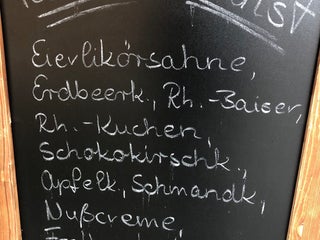 Eierlikörsahne,
Erdbeerk., Rh.-Baiser,
Rh.-Kuchen,
Schokokirschk.,
Apfelk., Schmandk.,
Nußcreme,